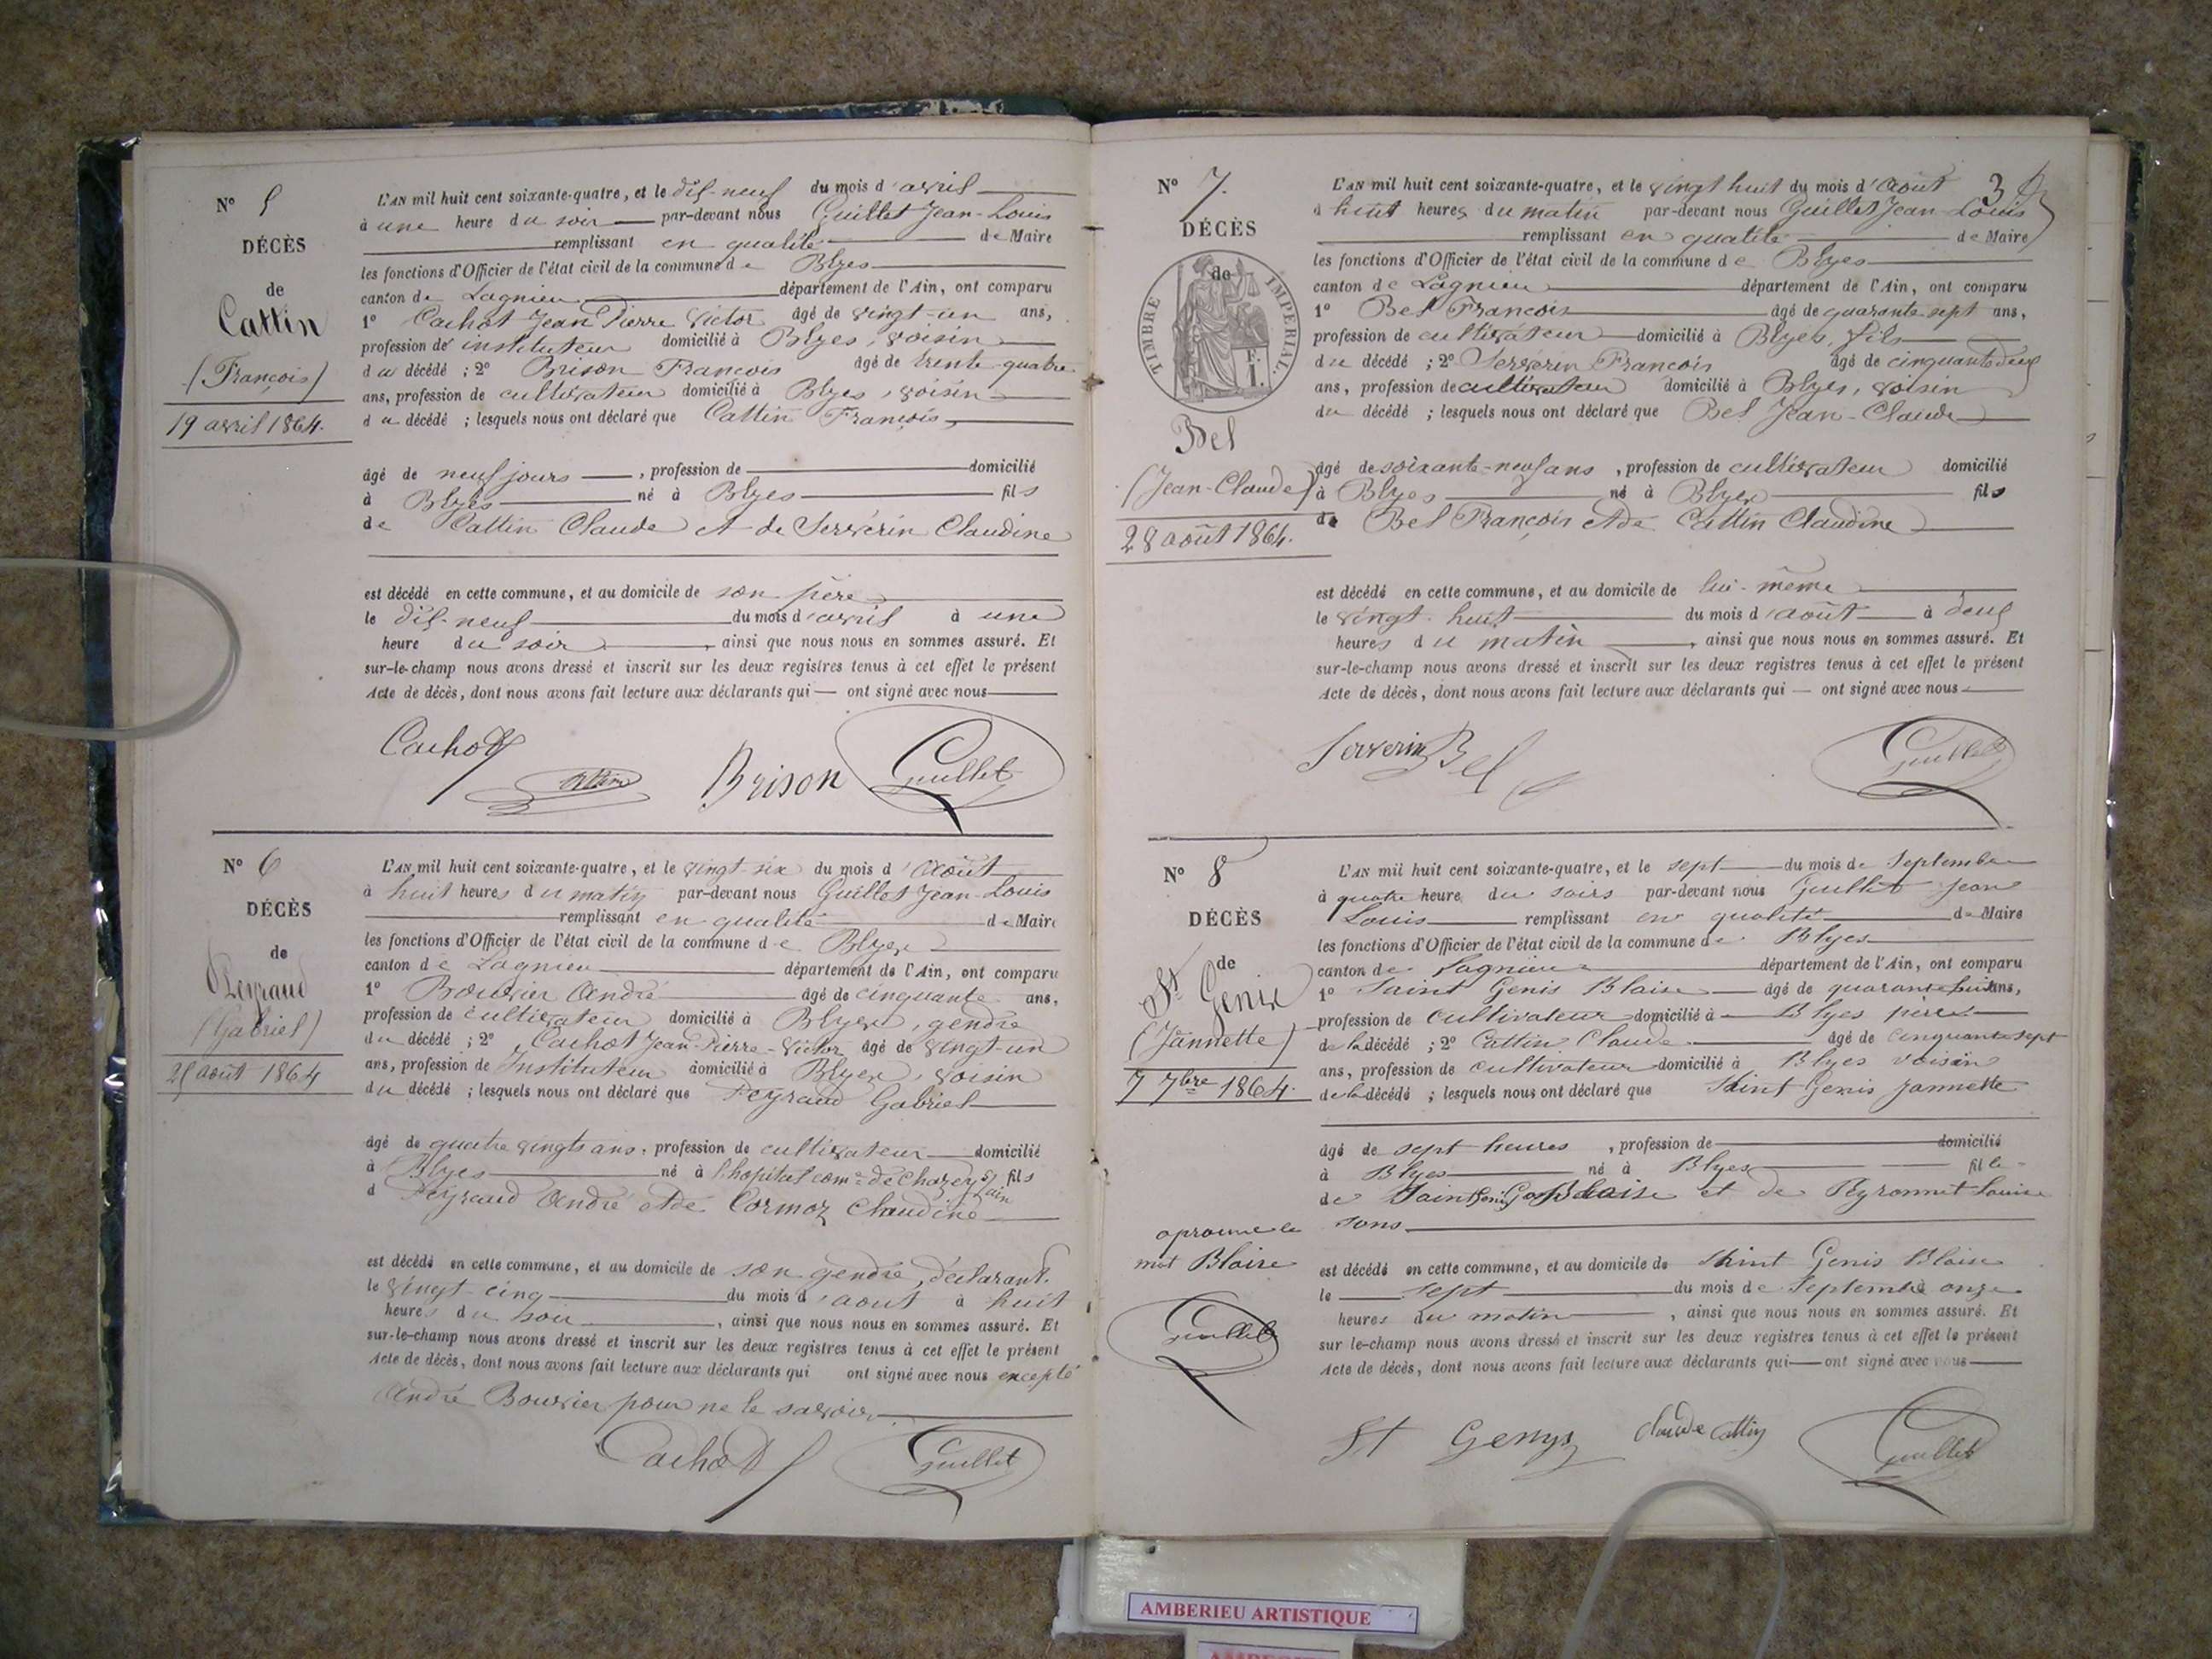 N° 5
DÉCÈS
de
Cattin
(François)
19 avril 1864.
L'AN mil huit cent soixante-quatre, et le dix-neuf du mois d'avril
à une heure du soir par-devant nous Guillet Jean-Louis
remplissant en qualité de Maire
les fonctions d'Officier de l'état civil de la commune de Blyes
canton de Lagnieu département de l'Ain, ont comparu
1° Cachot Jean Pierre Victor âgé de vingt-un ans,
profession de instituteur domicilié à Blyes, voisin
du décédé ; 2° Brison François âgé de trente quatre
ans, profession de cultivateur domicilié à Blyes, voisin
du décédé ; lesquels nous ont déclaré que Cattin François
âgé de neuf jours , profession de domicilié
à Blyes né à Blyes fils
de Cattin Claude et de Serverin Claudine
est décédé en cette commune, et au domicile de son père
le dix-neuf du mois d'avril à une
heure du soir , ainsi que nous nous en sommes assuré. Et
sur-le-champ nous avons dressé et inscrit sur les deux registres tenus à cet effet le présent
Acte de décès, dont nous avons fait lecture aux déclarants qui ont signé avec nous
Cachot Brison Guillet
N° 6
DÉCÈS
de
Peyraud
(Gabriel)
25 août 1864
L'AN mil huit cent soixante-quatre, et le vingt-six du mois d'Août
à huit heures du matin par-devant nous Guillet Jean-Louis
remplissant en qualité de Maire
les fonctions d'Officier de l'état civil de la commune de Blyes
canton de Lagnieu département de l'Ain, ont comparu
1° Bouvier André âgé de cinquante ans,
profession de cultivateur domicilié à Blyes, gendre
du décédé ; 2° Cachot Jean-Pierre-Victor âgé de vingt-un
ans, profession de Instituteur domicilié à Blyes, voisin
du décédé ; lesquels nous ont déclaré que Peyraud Gabriel
âgé de quatre vingts ans, profession de cultivateur domicilié
à Blyes né à l'hopital comne de Chazey s/ ain fils
d Peyraud André et de Cormoz Claudine
est décédé en cette commune, et au domicile de son gendre, déclarant.
le vingt-cinq du mois d'aout à huit
heures du soir , ainsi que nous nous en sommes assuré. Et
sur-le-champ nous avons dressé et inscrit sur les deux registres tenus à cet effet le présent
Acte de décès, dont nous avons fait lecture aux déclarants qui ont signé avec nous excepté
André Bouvier pour ne le savoir
Cachot Guillet
N° 7.
DÉCÈS
de
TIMBRE IMPÉRIAL.
F. I.
Bel
(Jean-Claude)
28 août 1864.
3
L'AN mil huit cent soixante-quatre, et le vingt huit du mois d'Août
à huit heures du matin par-devant nous Guillet Jean Louis
remplissant en qualité de Maire
les fonctions d'Officier de l'état civil de la commune de Blyes
canton de Lagnieu département de l'Ain, ont comparu
1° Bel François âgé de quarante sept ans,
profession de cultivateur domicilié à Blyes, fils
du décédé ; 2° Serverin François âgé de cinquante deux
ans, profession de cultivateur domicilié à Blyes, voisin
du décédé ; lesquels nous ont déclaré que Bel Jean-Claude
âgé de soixante-neuf ans , profession de cultivateur domicilié
à Blyes né à Blyes fils
de Bel François et de Cattin Claudine
est décédé en cette commune, et au domicile de lui-même
le vingt-huit du mois d'août à deux
heures du matin , ainsi que nous nous en sommes assuré. Et
sur-le-champ nous avons dressé et inscrit sur les deux registres tenus à cet effet le présent
Acte de décès, dont nous avons fait lecture aux déclarants qui ont signé avec nous
Serverin Bel Guillet
N° 8
DÉCÈS
de
St Genix
(Jannette)
7 7bre 1864.
L'AN mil huit cent soixante-quatre, et le sept du mois de Septembre
à quatre heure du soirs par-devant nous Guillet Jean
Louis remplissant en qualité de Maire
les fonctions d'Officier de l'état civil de la commune de Blyes
canton de Lagnieu département de l'Ain, ont comparu
1° Saint Genis Blaise âgé de quarante huit ans,
profession de cultivateur domicilié à Blyes père
de la décédé ; 2° Cattin Claude âgé de cinquante sept
ans, profession de cultivateur domicilié à Blyes voisin
de la décédé ; lesquels nous ont déclaré que Saint Genis Jannette
âgé de sept heures , profession de domicilié
à Blyes né à Blyes fille
de Saint Genis Blaise et de Peyronnet Louise
sons
aprouve le
mot Blaise
Guillet
est décédé en cette commune, et au domicile de Saint Genis Blaise
le sept du mois de Septembre à onze
heures du matin , ainsi que nous nous en sommes assuré. Et
sur-le-champ nous avons dressé et inscrit sur les deux registres tenus à cet effet le présent
Acte de décès, dont nous avons fait lecture aux déclarants qui ont signé avec nous
St Genys Claude Cattin Guillet
AMBERIEU ARTISTIQUE